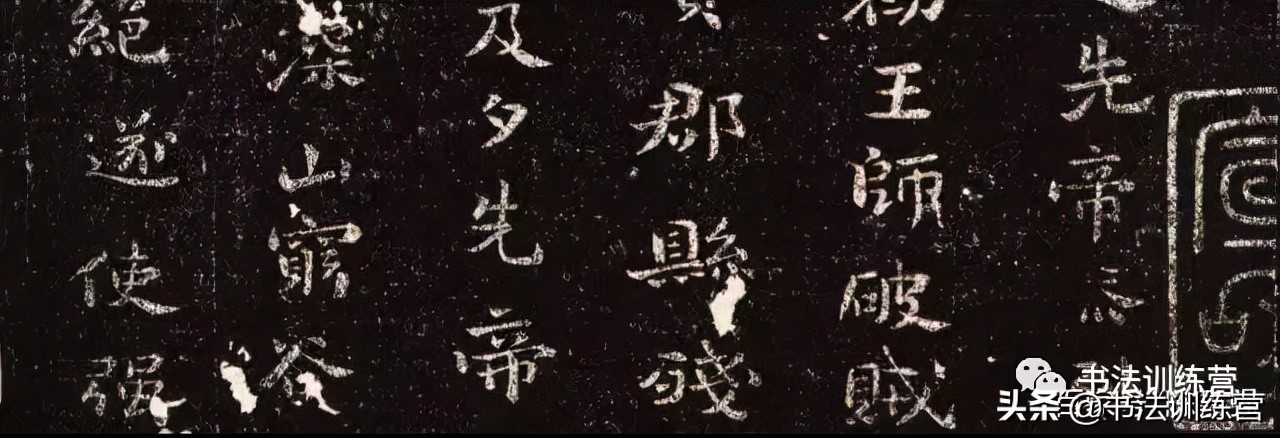 先帝
王師破賊
郡縣殘
及夕先帝
藻山窮谷
絕遂使强
书法训练营
头条@书法训练营